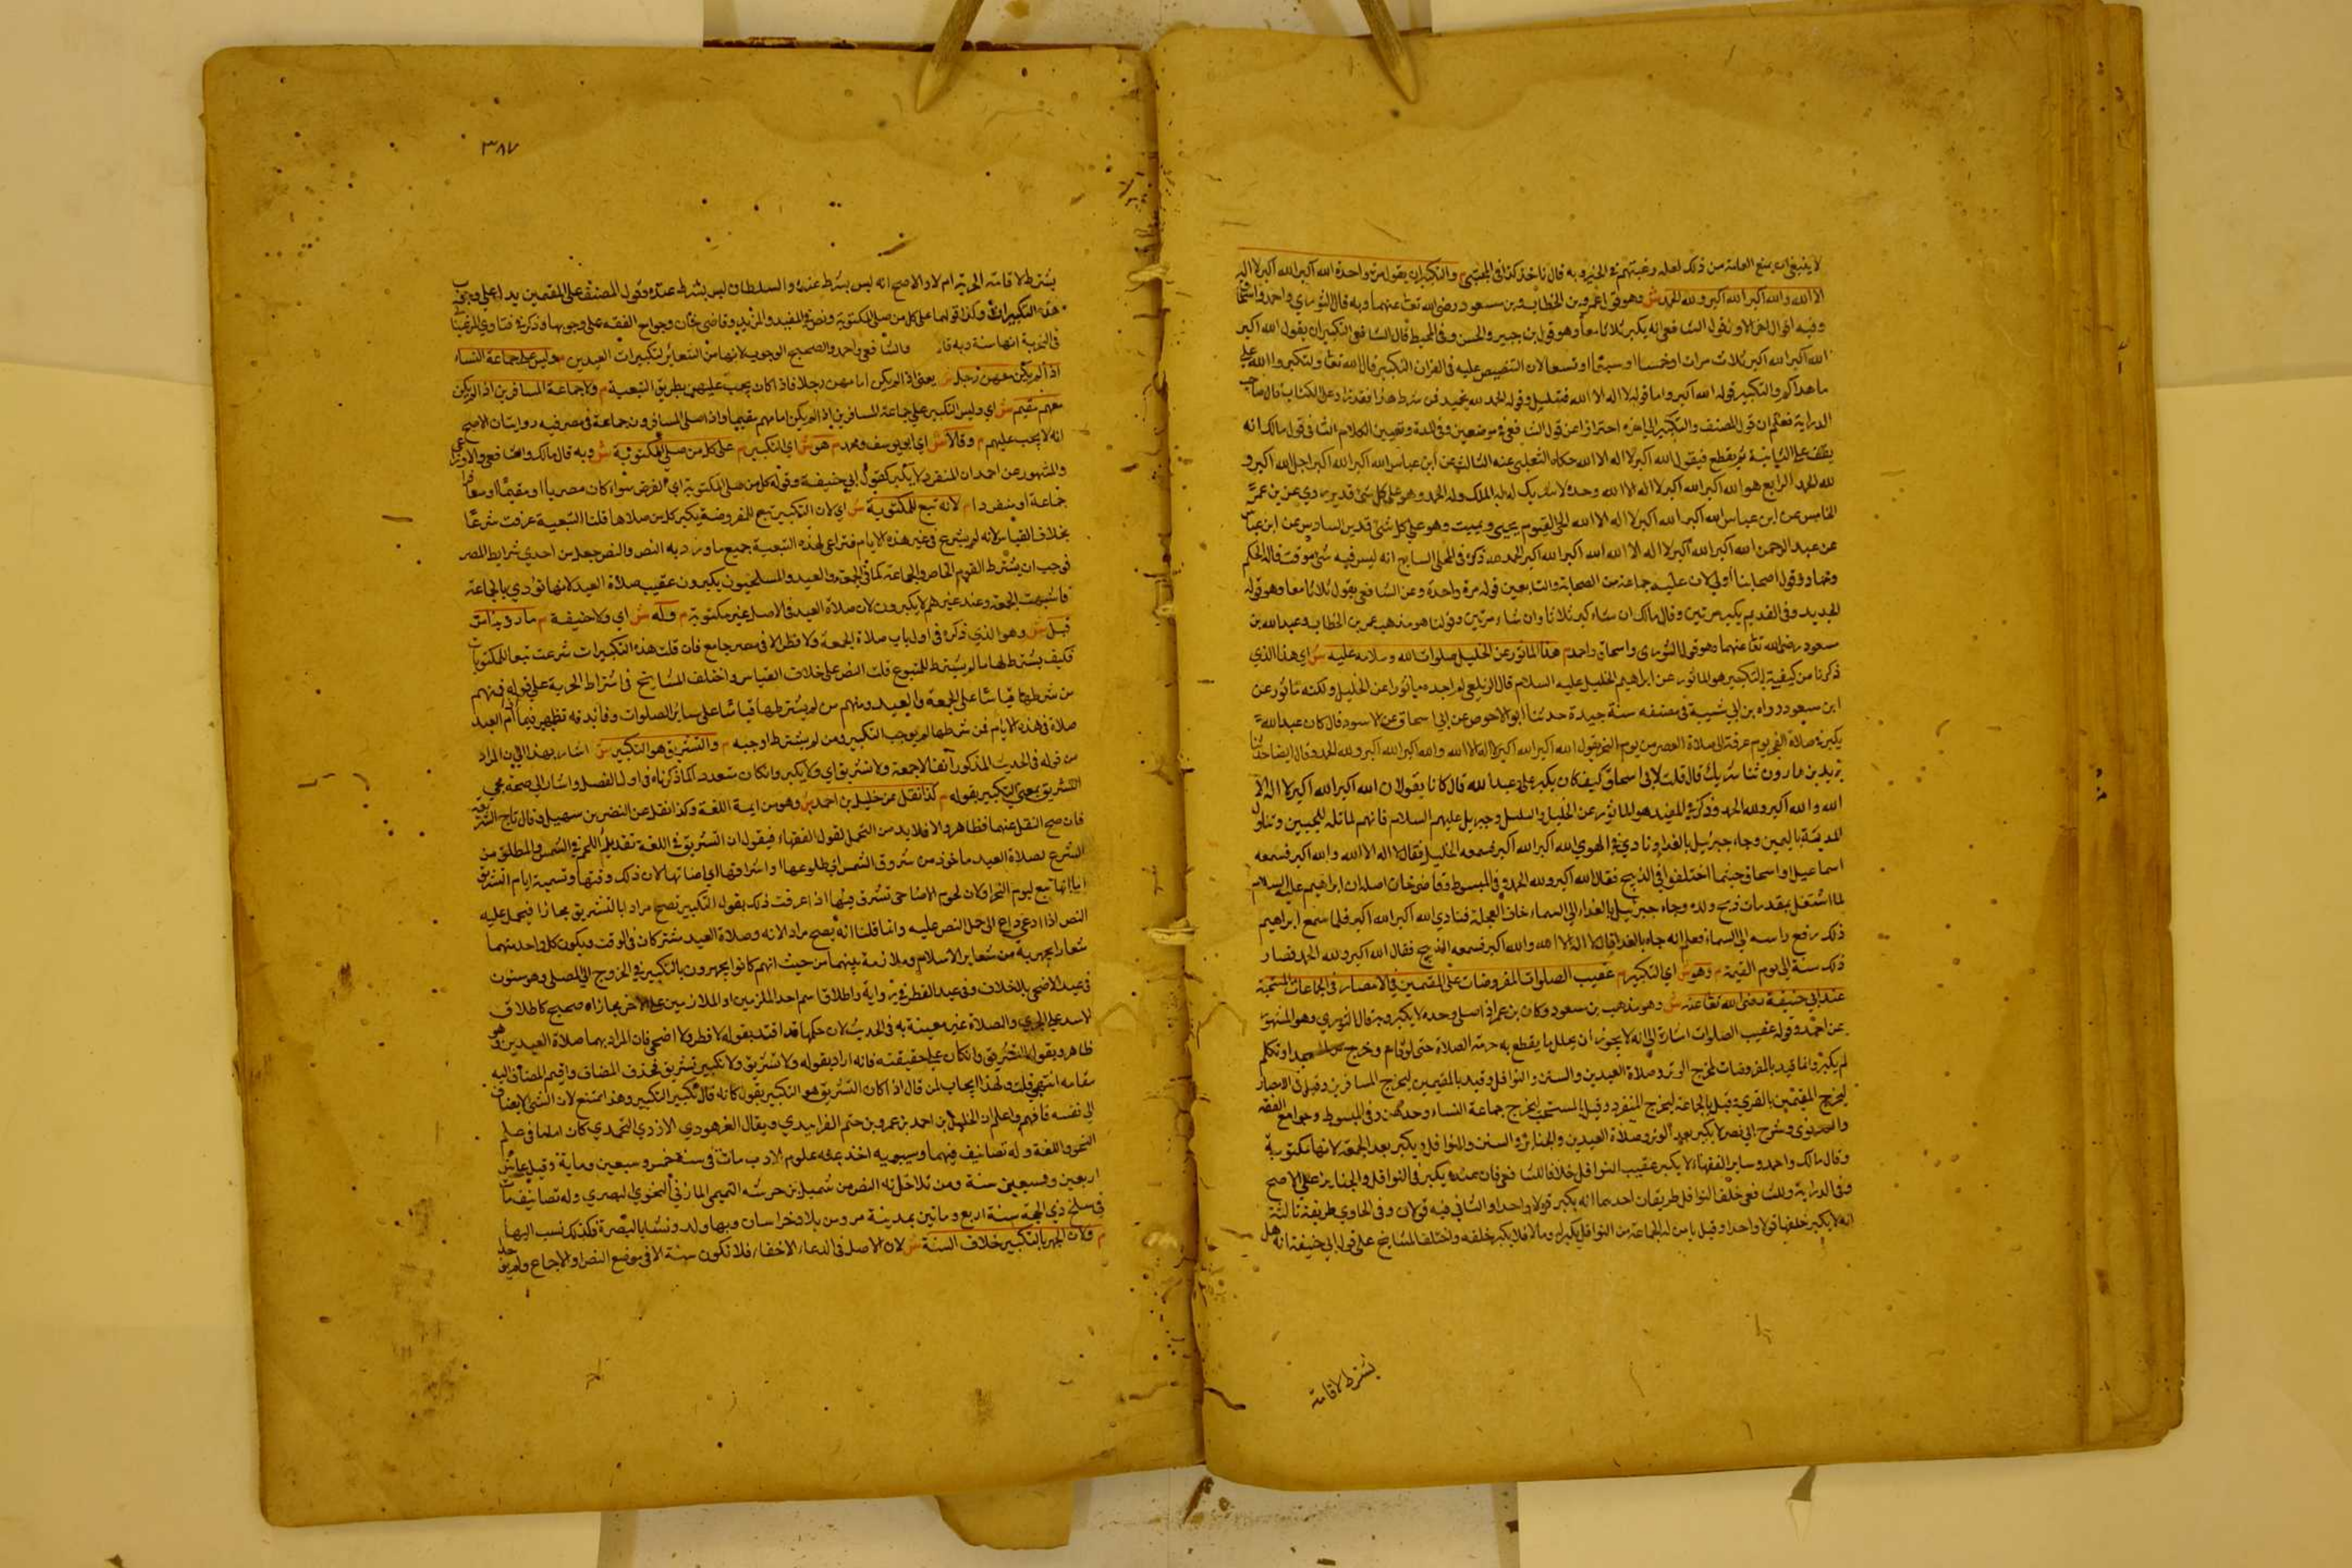 لا ينبغي ان يمنع العامة من ذلك لعله رغبتهم في الخير وبه قال ناخذ كذا في المجتبى م والتكبير ان يقول مرة واحدة الله اكبر الله اكبر لا اله
الا الله والله اكبر الله اكبر ولله الحمد ش وهو قول عمر وبن الخطاب وبن مسعود رضى الله تعا عنهما وبه قال الثوري واحمد واسحاق
وفيه اقوال اخر الاول قول الشافعي انه يكبر ثلاثا معا وهو قول ابن جبير والحسن وفي المحيط قال الشافعي التكبير ان يقول الله اكبر
الله اكبر الله اكبر ثلاث مرات او خمسا او سبعا او تسعا لان التنصيص عليه في القران التكبير قال الله تعا ولتكبروا الله على
ما هداكم والتكبير قوله الله اكبر واما قوله لا اله الا الله فتهليل وقوله الحمد لله تحميد فمن شرط هذا فقد زاد على الكتاب قال صاحب
الدراية فعلم ان قول المصنف والتكبير الى اخره احترازا عن قول الشافعي في موضعين وفي المدة وتعيين الكلام الثاني قول مالك انه
يقف على الثانية ثم يقطع فيقول الله اكبر لا اله الا الله حكاه الثعلبي عنه الثالث عن ابن عباس الله اكبر الله اكبر الله اجل الله اكبر و
لله الحمد الرابع هو الله اكبر الله اكبر لا اله الا الله وحده لا شريك له له الملك وله الحمد وهو على كل شئ قدير مروي عن بن عمر
الخامس عن ابن عباس الله اكبر الله اكبر لا اله الا الله الحي القيوم يحيي ويميت وهو على كل شئ قدير السادس عن ابن عباس
عن عبد الرحمن الله اكبر الله اكبر لا اله الا الله الله اكبر الله اكبر الحمد لله ذكره في المحلى السابع انه ليس فيه شئ موقت قاله الحكم
وحماد وقول اصحابنا اولى لان عليه جماعة من الصحابة والتابعين قوله مرة واحدة وعن الشافعي يقول ثلاثا معا وهو قوله
الجديد وفي القديم يكبر مرتين وقال مالك ان شاء كبر ثلاثا وان شاء مرتين وقولنا هو مذهب عمر بن الخطاب وعبد الله بن
مسعود رضى الله تعا عنهما وهو قول الثوري واسحاق واحمد م هذا الماثور عن الخليل صلوات الله وسلامه عليه ش اي هذا الذي
ذكرنا من كيفية التكبير هو الماثور عن ابراهيم الخليل عليه السلام قال الزيلعي لم اجده ماثورا عن الخليل ولكنه ماثور عن
ابن مسعود رواه بن ابي شيبة في مصنفه بسند جيدة حدثنا ابو الاحوص عن ابي اسحاق عن الاسود قال كان عبد الله
يكبر من صلاة الفجر يوم عرفة الى صلاة العصر من يوم النحر يقول الله اكبر الله اكبر لا اله الا الله والله اكبر الله اكبر ولله الحمد وقال ايضا حدثنا
يزيد بن هارون ثنا شريك قال قلت لابي اسحاق كيف كان يكبر علي وعبد الله قال كانا يقولان الله اكبر الله اكبر لا اله الا
الله والله اكبر ولله الحمد وذكر في المفيد هو الماثور عن الخليل وجبريل عليهم السلام فانهم لما تله للجبين وتناول
المدية باليمين وجاء جبرئيل بالفداء ونادى في الهوي الله اكبر الله اكبر فسمعه الخليل فقال لا اله الا الله والله اكبر فسمعه
اسماعيل او اسحاق حينما اختلفوا في الذبيح فقال الله اكبر ولله الحمد وفي المبسوط وقاضي خان اصله ان ابراهيم عليه السلام
لما اشتغل بمقدمات ذبح ولده وجاء جبرئيل بالفداء الى السماء خاف العجلة فنادى الله اكبر الله اكبر فلما سمع ابراهيم
ذلك رفع راسه الى السماء فعلم انه جاء بالفداء قال لا اله الا الله والله اكبر فسمعه الذبيح فقال الله اكبر ولله الحمد فصار
ذلك سنة الى يوم القيمة م وهو ش اي التكبير م عقيب الصلوات المفروضات على المقيمين في الامصار في الجماعات المستحبة
عند ابي حنيفة رضى الله تعا عنه ش وهو مذهب بن مسعود وكان بن عمر اذا صلى وحده لا يكبر وبه قال الثوري وهو المشهور
عن احمد وقوله عقيب الصلوات اشارة الى انه لا يجوز ان يخلل ما يقطع به حرمة الصلاة حتى لو قام وخرج من المسجد او تكلم
لم يكبر وانما قيد بالمفروضات ليخرج الوتر وصلاة العيدين والسنن والنوافل وقيد بالمقيمين ليخرج المسافرين وقيل في الامصار
ليخرج المقيمين بالقرى وقيل بالجماعة ليخرج المنفرد وقيل بالمستحب ليخرج جماعة النساء وحدهن وفي المبسوط وجوامع الفقه
وشرح ابي نصر لا يكبر بعد الوتر وصلاة العيدين والجنائز والسنن والنوافل ويكبر بعد الجمعة لانها مكتوبة
وقال مالك واحمد وساير الفقهاء لا يكبر عقيب النوافل خلافا للشافعي فان عنده يكبر في النوافل والجنايز على الاصح
وفي الدراية وللشافعي خلف النوافل طريقان احدهما انه يكبر قولا واحدا والثاني فيه قولان وفي الحاوي طريقة ثالثة
انه لا يكبر خلفها قولا واحدا وقيل ما سن له الجماعة من النوافل يكبر له وما لا فلا يكبر خلفه واختلف المشايخ على قول ابي حنيفة انه هل
يشترط لاقامة
٣٨٧
يشترط لاقامة الحرية ام لا والاصح انه ليس بشرط عنده والسلطان ليس بشرط عنده وقول المصنف على المقيمين يدل على وجوب
هذه التكبيرات وكذا قولهما على كل من صلى المكتوبة ونص في المفيد والمزيد وقاضي خان وجوامع الفقه على وجوبها وذكر في فتاوي المرغيناني
في التجريد انها سنة وبه قال والشافعي واحمد والصحيح الوجوب لانها من الشعائر لتكبيرات العيدين م وليس على جماعة النساء
اذا لم يكن معهن رجل ش يعني اذا لم يكن امامهن رجلا فاذا كان يجب عليهن بطريق التبعية م ولا جماعة المسافرين اذا لم يكن
معهم مقيم ش اي وليس التكبير على جماعة المسافرين اذا لم يكن امامهم مقيما واذا صلى المسافرون جماعة في مصر فيه روايتان الاصح
انه لا يجب عليهم م وقالا ش اي ابو يوسف ومحمد م هو ش اي التكبير م على كل من صلى المكتوبة ش وبه قال مالك والشافعي والاوزاعي
والمشهور عن احمد ان المنفرد لا يكبر كقول ابي حنيفة وقوله كل من صلى المكتوبة اي الفرض سواء كان مصريا او مقيما او مسافرا
جماعة او منفردا م لانه تبع للمكتوبة ش اي لان التكبير تبع للمفروضة يكبر كل من صلاها قلنا التبعية عرفت شرعا
بخلاف القياس لانه لم يشرع في غير هذه الايام فتراعى لهذه التبعية جميع ما ورد به النص والنص جعل من احدى شرايط المصر
فوجب ان يشترط القوم الخاص والجماعة كما في الجمعة والعيد والمسلخيون يكبرون عقيب صلاة العيد لانها تؤدي بالجماعة
فاشبهت الجمعة وعند غيرهم لا يكبرون لان صلاة العيد في الاصل غير مكتوبة م وله ش اي ولابي حنيفة م ما روينا من
قبل ش وهو الذي ذكره في اول باب صلاة الجمعة ولا فطر الا في مصر جامع فان قلت هذه التكبيرات شرعت تبعا للمكتوبات
فكيف يشترط لها ما لم يشترط للمتبوع قلت النص على خلاف القياس واختلف المشايخ في اشتراط الحرية على قوله فمنهم
من شرطها قياسا على الجمعة والعيد ومنهم من لم يشترطها قياسا على ساير الصلوات وفائدته تظهر فيما اذا ام العبد
صلاة في هذه الايام فمن شرطها لم يوجب التكبير ومن لم يشترط اوجبه م والتشريق هو التكبير ش اشار بهذا الى ان المراد
من قوله في الحديث المذكور آنفا لا جمعة ولا تشريق اي ولا يكبر وان كان متعددا كما ذكرناه في اول الفصل واشار الى صحة مجئ
التشريق بمعنى التكبير بقوله م كذا نقل عن خليل بن احمد ش وهو من ايمة اللغة وكذا نقل عن النضر بن سهيل وقال تاج الشريعة
فان صح النقل عنهما فظاهر والا فلا بد من التمحل لقول الفقهاء فيقول ان التشريق في اللغة تقديم اللحم في الشمس والمطلق من
الشرع لصلاة العيد ماخوذ من شروق الشمس اي طلوعها او اشراقها اي اضاءتها لان ذلك وقتها وتسمية ايام التشريق
اما انها تبع ليوم النحر او لان لحوم الاضاحي تشرق فيها اذا عرفت ذلك يقول التكبير نصح مرادا بالتشريق مجازا فيحمل عليه
النص اذا ادعى داع الى حمل النص عليه وانما قلنا انه يصح مرادا لانه وصلاة العيد مشتركان في الوقت ويكون كل واحد منهما
شعارا يجهر به من شعاير الاسلام وملازمة بينهما من حيث انهم كانوا يجهرون بالتكبير في الخروج الى المصلى وهو مسنون
في عيد الاضحى بالخلاف وفي عيد الفطر في رواية واطلاق اسم احد الملزمين او الملازمين على الاخر مجازاه صحيح كاطلاق
الاسد على الجري والصلاة غير معينة به في الحديث لان حكمها قد افتد بقوله لا فطر ولا اضحى فان المراد بهما صلاة العيدين وهو
ظاهر وبقول التشريق وان كان على حقيقته فانه اراد بقوله ولا تشريق ولا تكبير تشريق فحذف المضاف واقيم المضاف اليه
مقامه انتهى قلت ولهذا ايجاب لمن قال اذا كان التشريق هو التكبير يقول كانه قال تكبير التكبير وهذا ممتنع لان الشئ لا يضاف
الى نفسه فافهم واعلم ان الخليل بن احمد بن عمرو بن حتم الفراهيدي ويقال الفرهودي الازدي اليحمدي كان اماما في علم
النحو واللغة وله تصانيف فيهما وسيبويه اخذ عنه علوم الادب مات في سنة خمس وسبعين وماية وقيل عاش
اربعين وسبعين سنة ومن تلاخل له النضر من شميل بن حرشه التميمي المازني النحوي البصري وله تصانيف مات
في سلخ ذي الحجة سنة اربع وماتين بمدينة مرو من بلاد خراسان وبها ولد ونشا بالبصرة فلذلك نسب اليها
م ولان الجهر بالتكبير خلاف السنة ش لان الاصل في الدعاء الاخفاء فلا تكون سنة الا في موضع النص والاجماع ولم يوجد